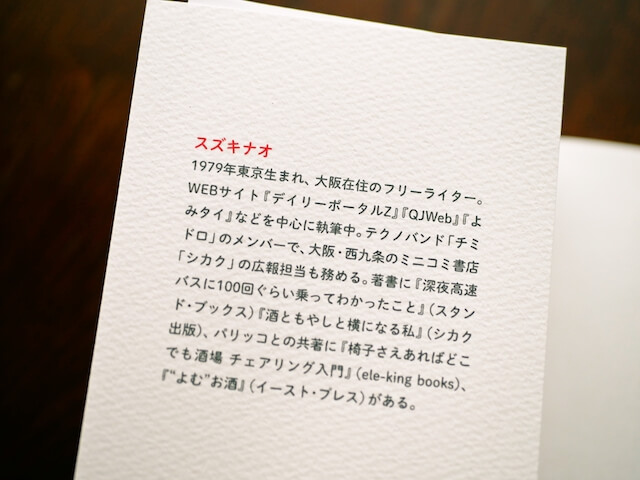 スズキナオ
1979年東京生まれ、大阪在住のフリーライター。
WEBサイト『デイリーポータルZ』『QJWeb』『よ
みタイ』などを中心に執筆中。テクノバンド「チミ
ドロ」のメンバーで、大阪・西九条のミニコミ書店
「シカク」の広報担当も務める。著書に『深夜高速
バスに100回ぐらい乗ってわかったこと』（スタン
ド・ブックス）『酒ともやしと横になる私』（シカク
出版）、パリッコとの共著に『椅子さえあればどこ
でも酒場 チェアリング入門』（ele-king books）、
『“よむ”お酒』（イースト・プレス）がある。